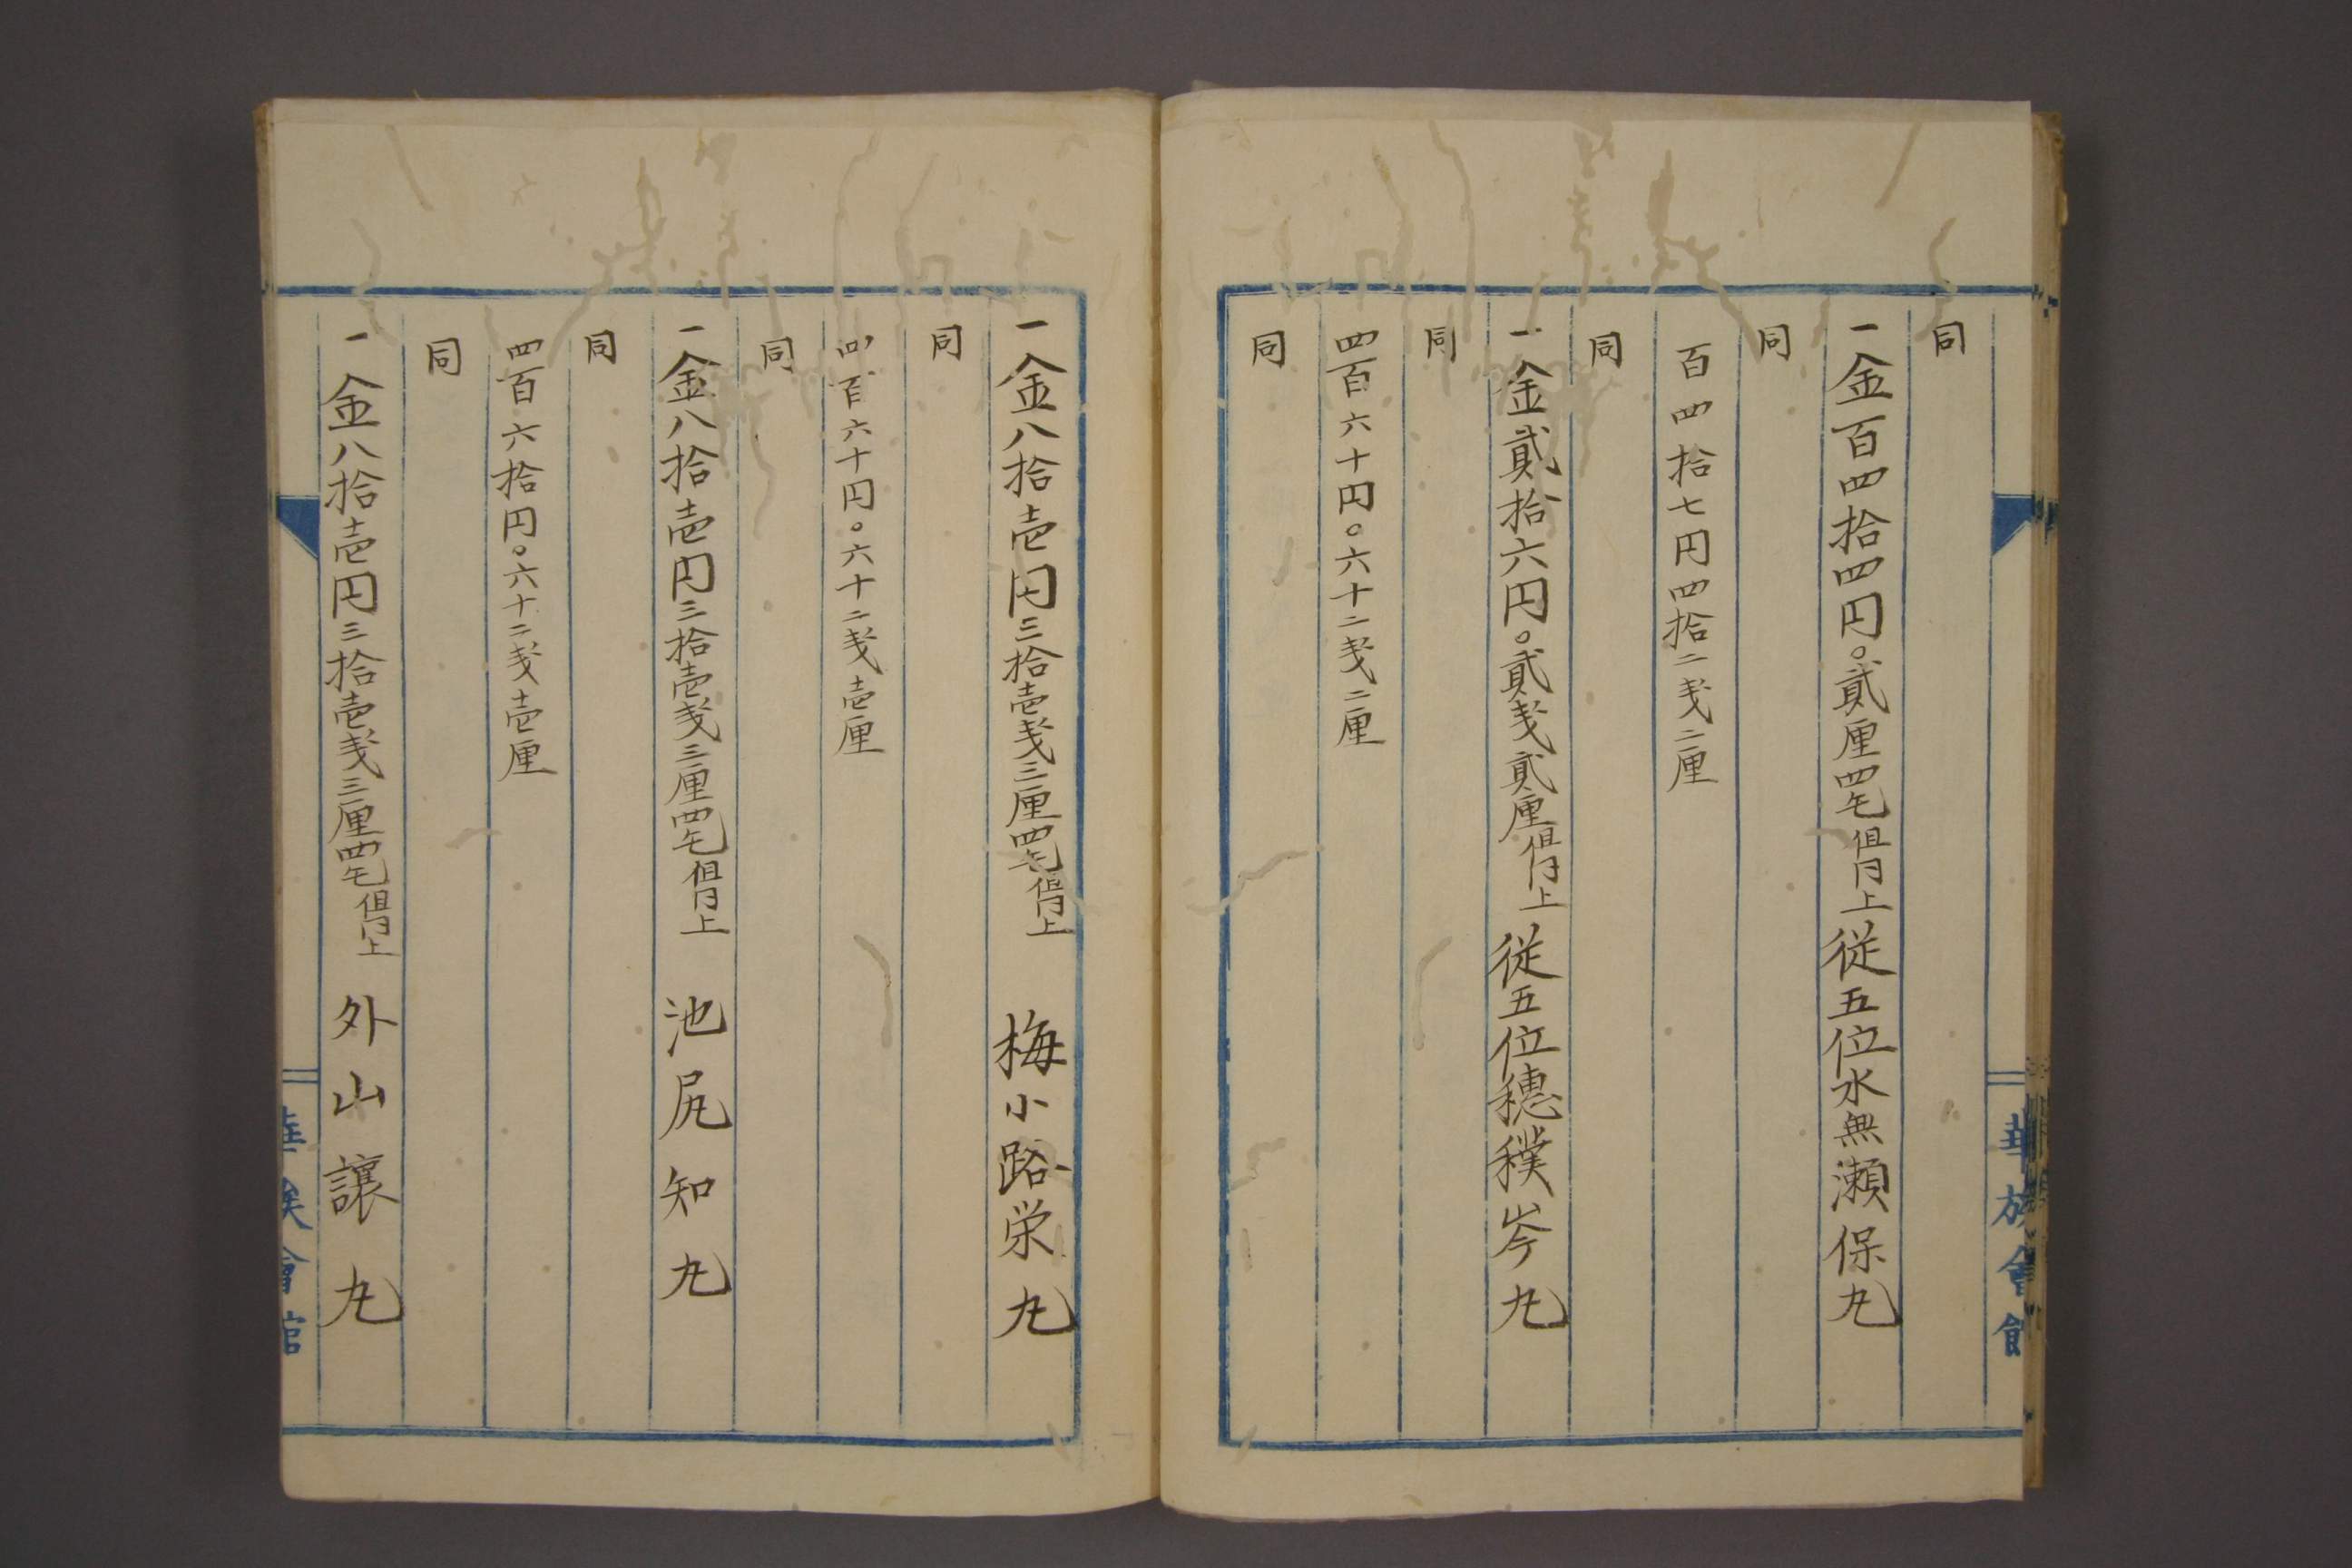 華族會館
同
一金百四拾四円〇貳厘四毛 但同上 従五位水無瀬保丸
同
百四拾七円四拾二戔二厘
同
一金貳拾六円〇貳戔貳厘 但同上 従五位穂穙岑丸
同
四百六十円〇六十二戔二厘
同
一金八拾壱円三拾壱戔三厘四毛 但同上 梅小路栄丸
同
四百六十円〇六十二戔壱厘
同
一金八拾壱円三拾壱戔三厘四毛 但同上 池尻知丸
同
四百六拾円〇六十二戔壱厘
同
一金八拾壱円三拾壱戔三厘四毛 但同上 外山讓丸
華族會館